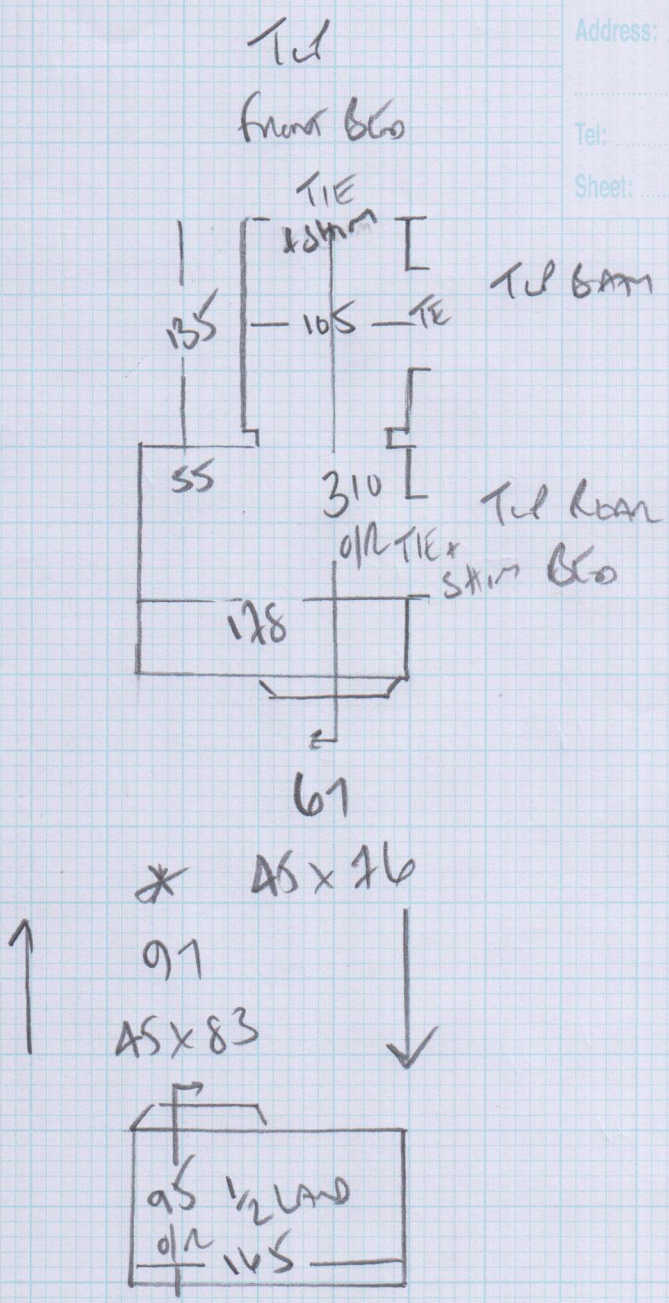 Address:
Tel:
Sheet:
Front BED
TIE
+ SHIM
135
105
TE
55
310
O/R TIE +
SHIM BED
178
61
* 45 x 76
91
45 x 83
95 1/2 LAND
O/R
165